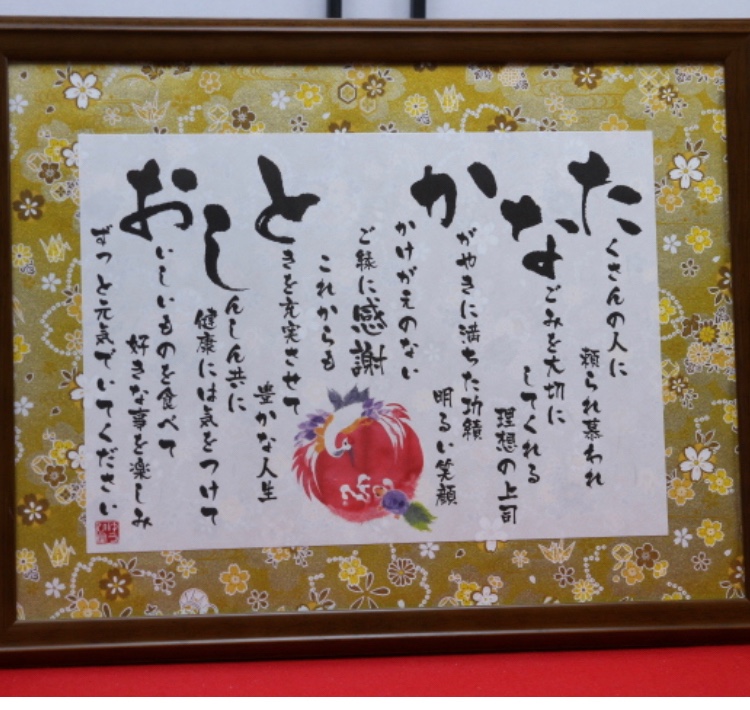 たくさんの人に
頼られ慕われ
なごみを大切に
してくれる
理想の上司
かがやきに満ちた功績
明るい笑顔
かけがえのない
ご縁に感謝
これからも
ときを充実させて
豊かな人生
しんしん共に
健康には気をつけて
おいしいものを食べて
好きな事を楽しみ
ずっと元気でいてください